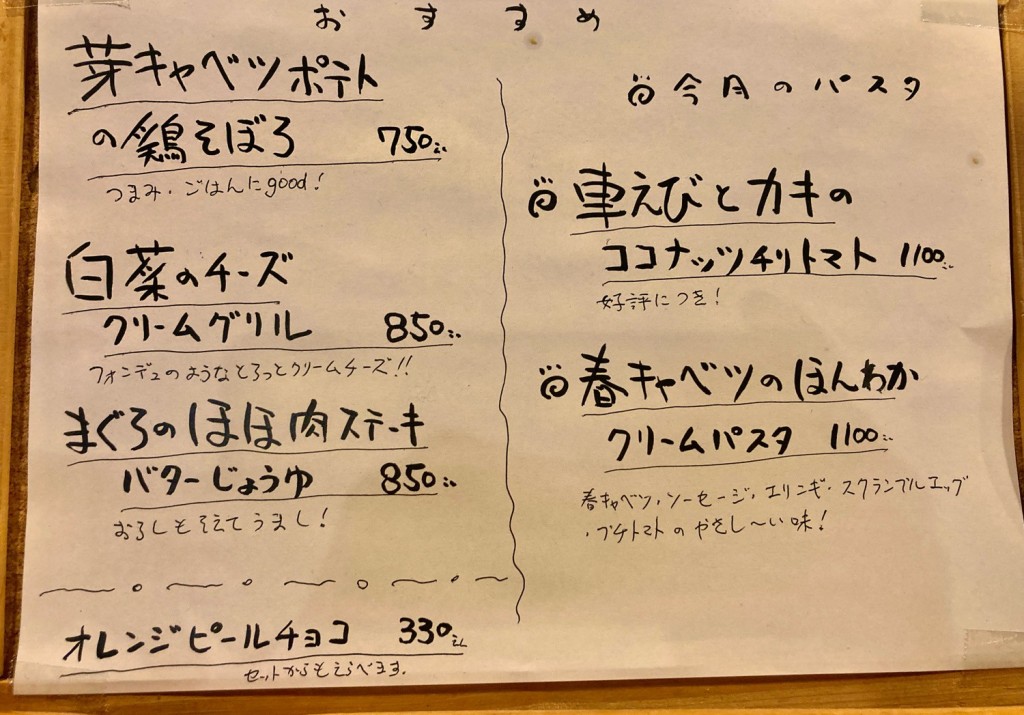 おすすめ
芽キャベツポテト
の鶏そぼろ 750
つまみ・ごはんにgood!
白菜のチーズ
クリームグリル 850
フォンデュのようなとろっとクリームチーズ!!
まぐろのほほ肉ステーキ
バターじょうゆ 850
おろしもそえてうまし!
オレンジピールチョコ 330
セットからもえらべます.
今月のパスタ
車えびとカキの
ココナッツチリトマト 1100
好評につき!
春キャベツのほんわか
クリームパスタ 1100
春キャベツ・ソーセージ・エリンギ・スクランブルエッグ
・プチトマトのやさし〜い味!